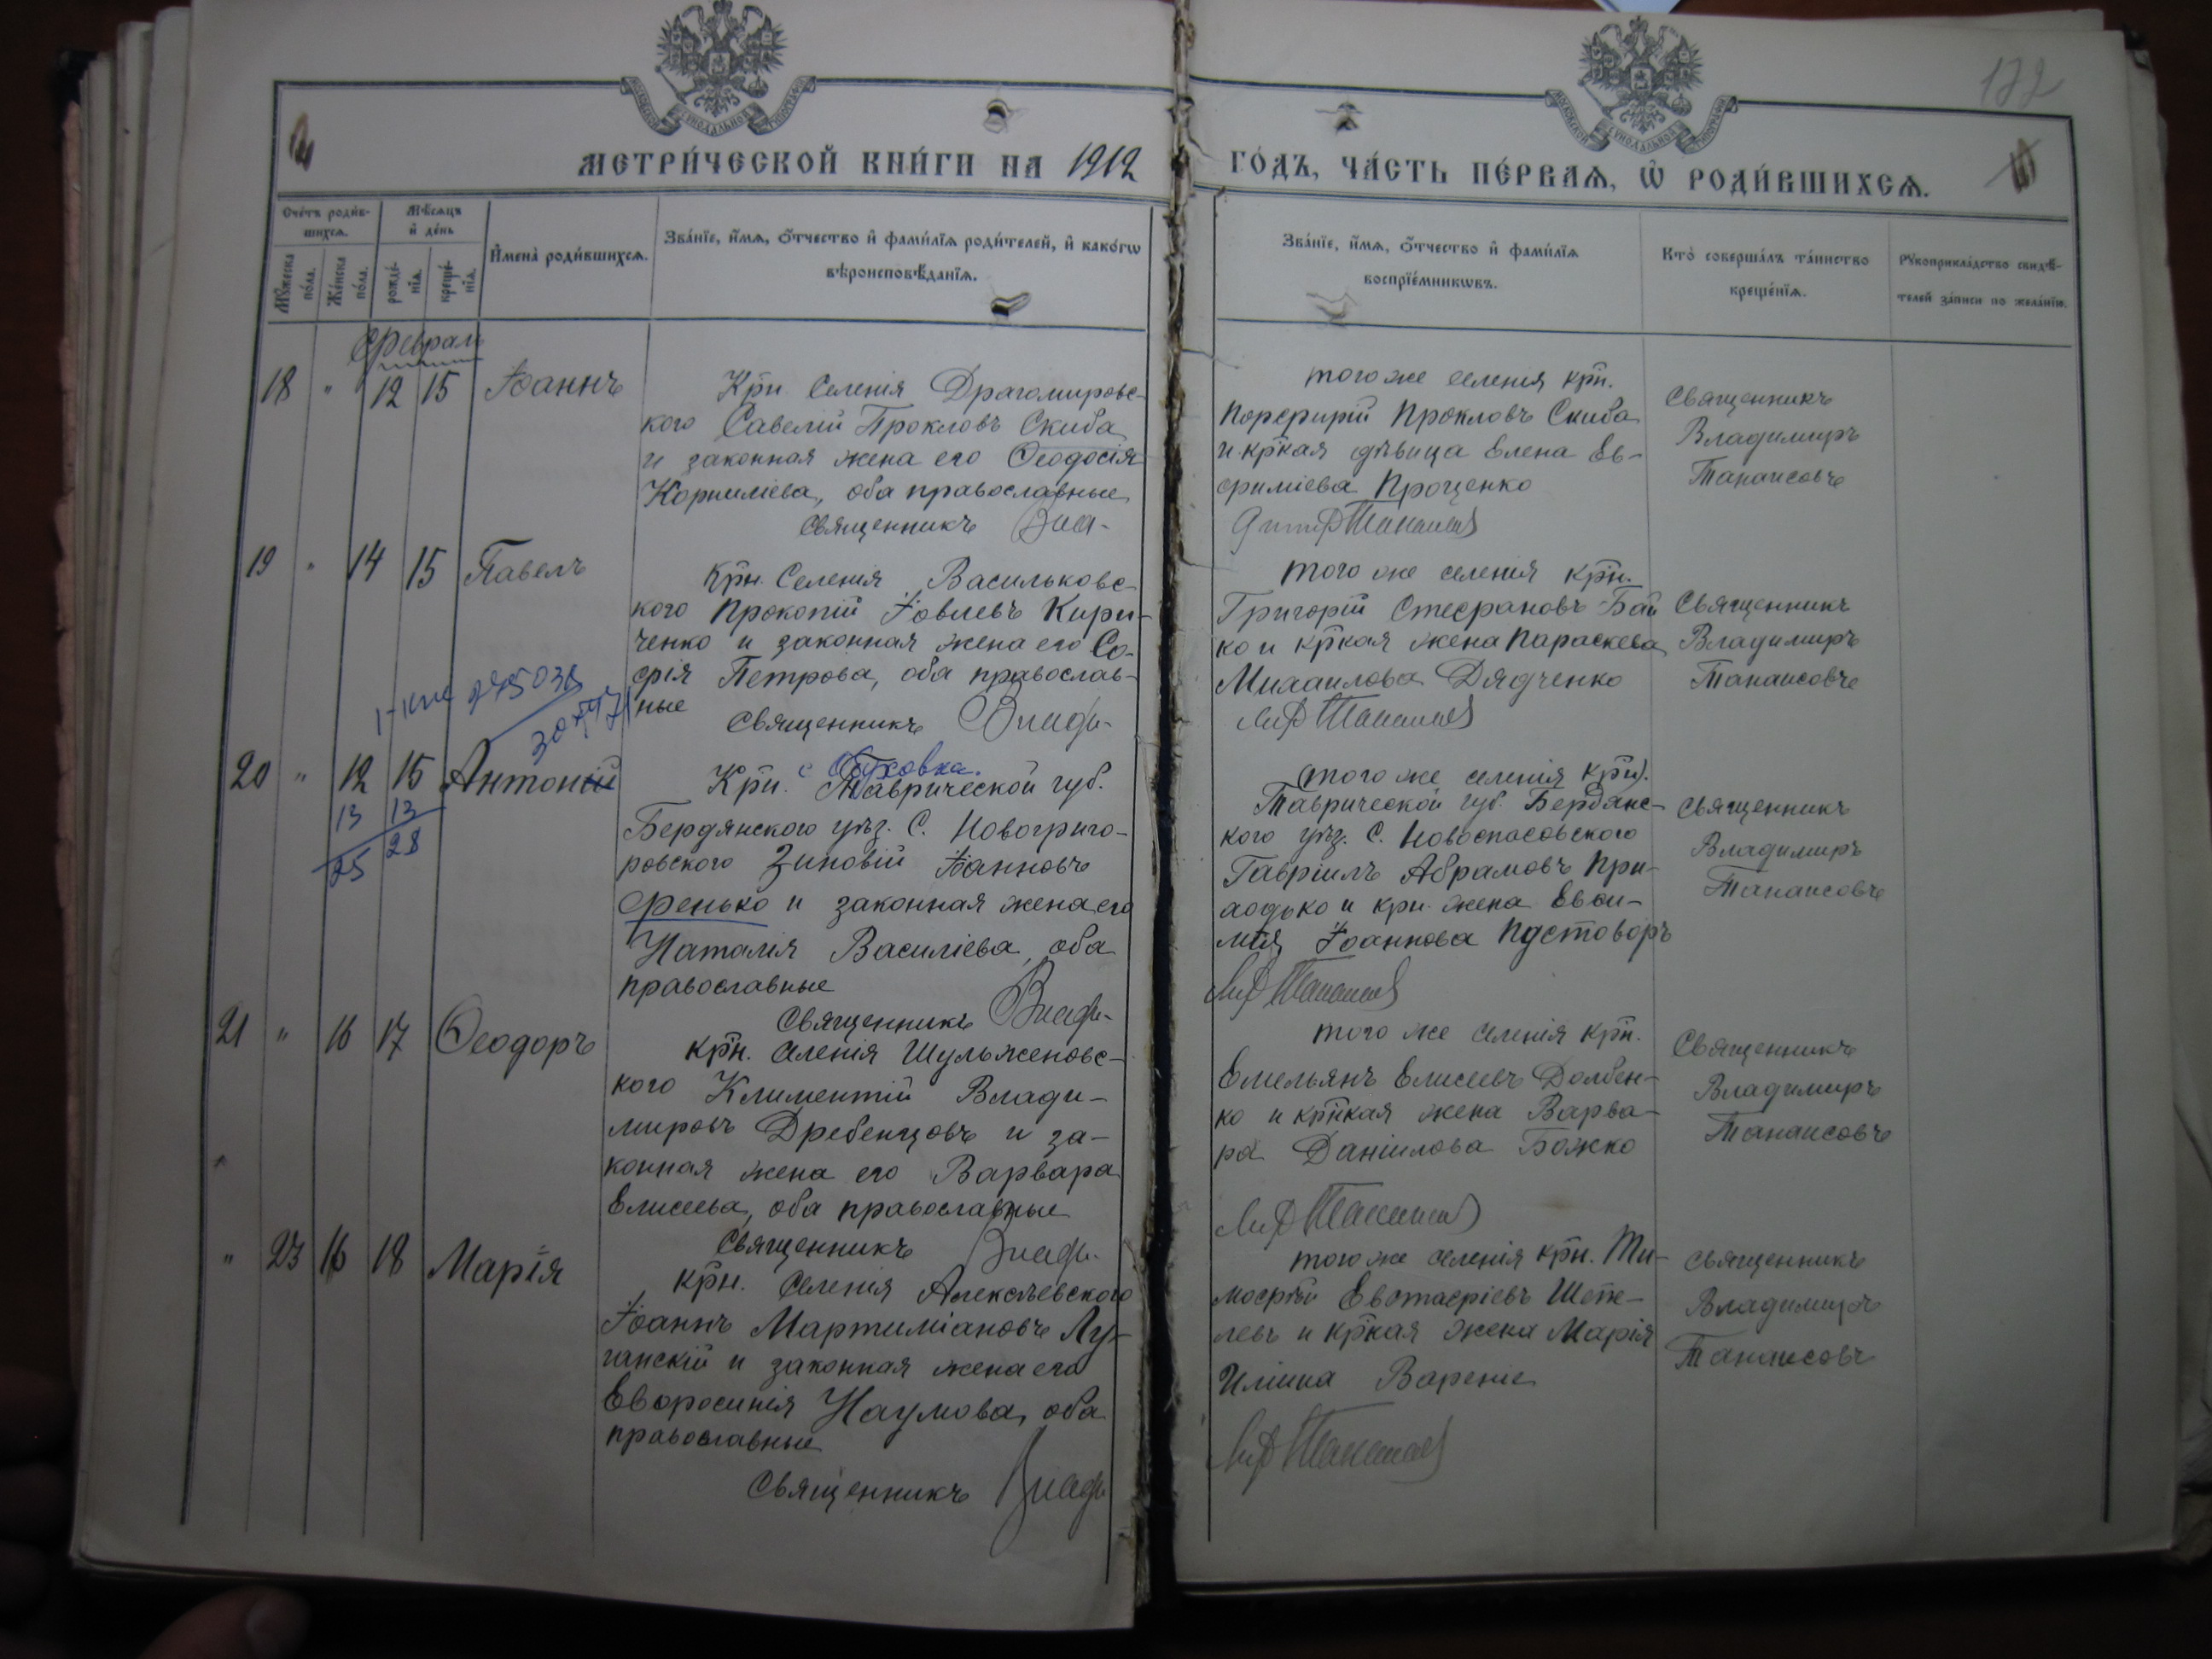 МЕТРИ́ЧЕСКОЙ КНИ́ГИ НА 1912 ГО́ДЪ, ЧА́СТЬ ПЕ́РВАѦ, Ѡ҆ РОДИ́ВШИХСѦ.
122
Сче́тъ роди́в-
шихсѧ.
Мꙋ́жеска по́ла.
Же́нска по́ла.
Мѣ́сѧцъ
и҆ де́нь
рожде́-
нїѧ.
креще́-
нїѧ.
И҆мена̀ роди́вшихсѧ.
Зва́нїе, и҆́мѧ, ѻ҆́тчество и҆ фами́лїѧ роди́телей, и҆ како́гѡ
вѣроисповѣ́данїѧ.
Зва́нїе, и҆́мѧ, ѻ҆́тчество и҆ фами́лїѧ
воспрїе́мникѡвъ.
Кто̀ соверша́лъ та́инство
креще́нїѧ.
Рꙋкоприкла́дство свидѣ́-
телей за́писи по жела́нїю.
Февраль
18 " 12 15 Іоаннъ
Крн. Селенія Драгомировс-
кого Савелій Прокловъ Скиба
и законная жена его Ѳеодосія
Корниліева, оба православные
Священникъ Вла-
того же селенія крн.
Порфирій Прокловъ Скиба
и кр-кая дѣвица Елена Ев-
фиміева Проценко
Священникъ
Владимиръ
Танаисовъ
19 " 14 15 Павелъ
Крн. Селенія Васильковс-
кого Прокопій Іовлевъ Кири-
ченко и законная жена его Со-
фія Петрова, оба православ-
ные
Священникъ Влади-
того же селенія крн.
Григорій Стефановъ Бай
ко и кр-кая жена Параскева
Михаилова Дядченко
Священникъ
Владимиръ
Танаисовъ
20 " 12 15 Антоній
13 13
25 28
Крн. Таврической губ.
Бердянского уѣз. С. Новогриго-
ровского Зиновій Іоанновъ
Фенько и законная жена его
Наталія Василіева, оба
православные
Священникъ Влади-
(того же селенія крн).
Таврической губ. Бердянс-
кого уѣз. С. Новоспасовского
Гавріилъ Абрамовъ При-
ходько и крн. жена Евѳи-
мія Іоаннова Пустоворъ
Священникъ
Владимиръ
Танаисовъ
21 " 16 17 Ѳеодоръ
крн. селенія Шульженовс-
кого Климентій Влади-
мировъ Дребенцовъ и за-
конная жена его Варвара
Елисеева, оба православные
Священникъ Влади-
того же селенія крн.
Емельянъ Елисеевъ Долбен-
ко и кр-кая жена Варва-
ра Даніилова Божко
Священникъ
Владимиръ
Танаисовъ
" 23 16 18 Марія
крн. Селенія Алексѣевского
Іоаннъ Мартиміановъ Лу-
ганскій и законная жена его
Евфросинія Наумова, оба
православные
Священникъ Влади
того же селенія крн. Ти-
мофѣй Евстафіевъ Шепе-
левъ и кр-кая жена Марія
Иліина Варение
священникъ
Владимиръ
Танаисовъ